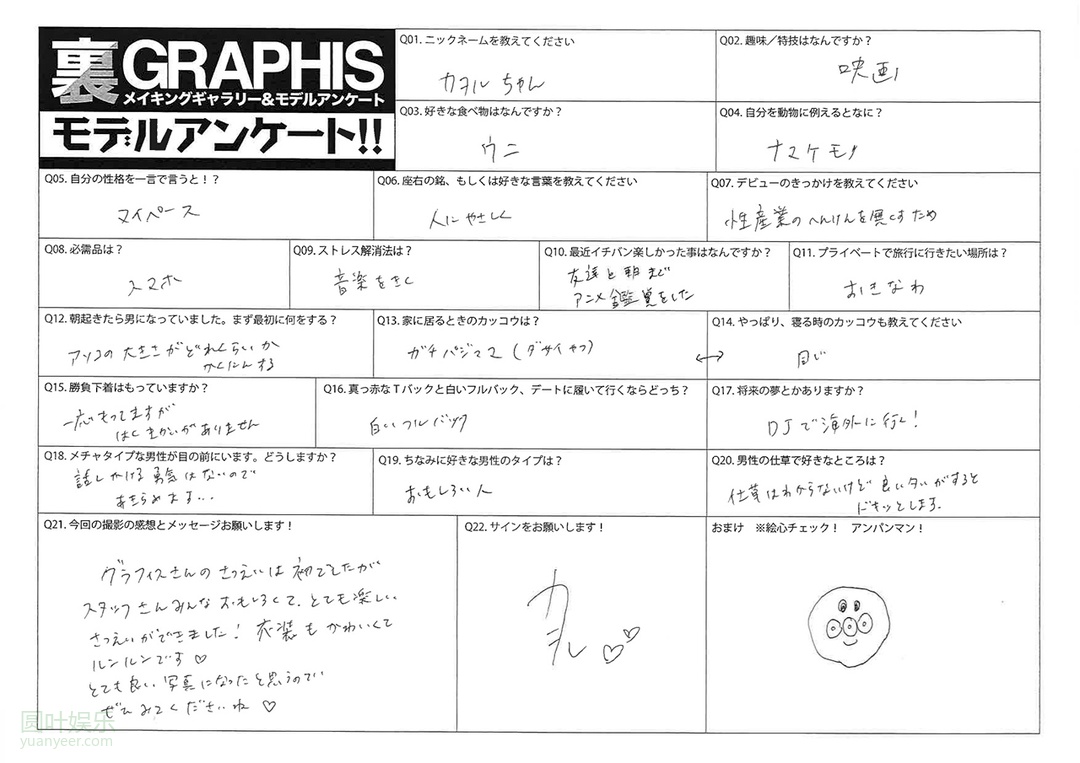 裏GRAPHIS
メイキングギャラリー&モデルアンケート
モデルアンケート!!
Q01. ニックネームを教えてください
カヲルちゃん
Q02. 趣味／特技はなんですか？
映画
Q03. 好きな食べ物はなんですか？
ウニ
Q04. 自分を動物に例えるとなに？
ナマケモノ
Q05. 自分の性格を一言で言うと！？
マイペース
Q06. 座右の銘、もしくは好きな言葉を教えてください
人にやさしく
Q07. デビューのきっかけを教えてください
性産業のへんけんを無くすため
Q08. 必需品は？
スマホ
Q09. ストレス解消法は？
音楽をきく
Q10. 最近イチバン楽しかった事はなんですか？
友達と朝まで
アニメ鑑賞をした
Q11. プライベートで旅行に行きたい場所は？
おきなわ
Q12. 朝起きたら男になっていました。まず最初に何をする？
アソコの大きさがどれくらいか
かくにんする
Q13. 家に居るときのカッコウは？
ガチパジママ（ダサイやつ）
Q14. やっぱり、寝る時のカッコウも教えてください
↔ 同じ
Q15. 勝負下着はもっていますか？
一応もってますが
はくきかいがありません
Q16. 真っ赤なTバックと白いフルバック、デートに履いて行くならどっち？
白いフルバック
Q17. 将来の夢とかありますか？
DJで海外に行く！
Q18. メチャタイプな男性が目の前にいます。どうしますか？
話しかける勇気はないので
あきらめます...
Q19. ちなみに好きな男性のタイプは？
おもしろい人
Q20. 男性の仕草で好きなところは？
仕草はわからないけど良い匂いがすると
ドキッとします。
Q21. 今回の撮影の感想とメッセージお願いします！
グラフィスさんのさつえいは初でしたが
スタッフさんみんなおもしろくて、とても楽しい
さつえいができました！衣装もかわいくて
ルンルンです♡
とても良い写真になったと思うので
ぜひみてくださいね♡
Q22. サインをお願いします！
カヲル♡♡
おまけ ※絵心チェック！ アンパンマン！
圆叶娱乐
yuanyeer.com